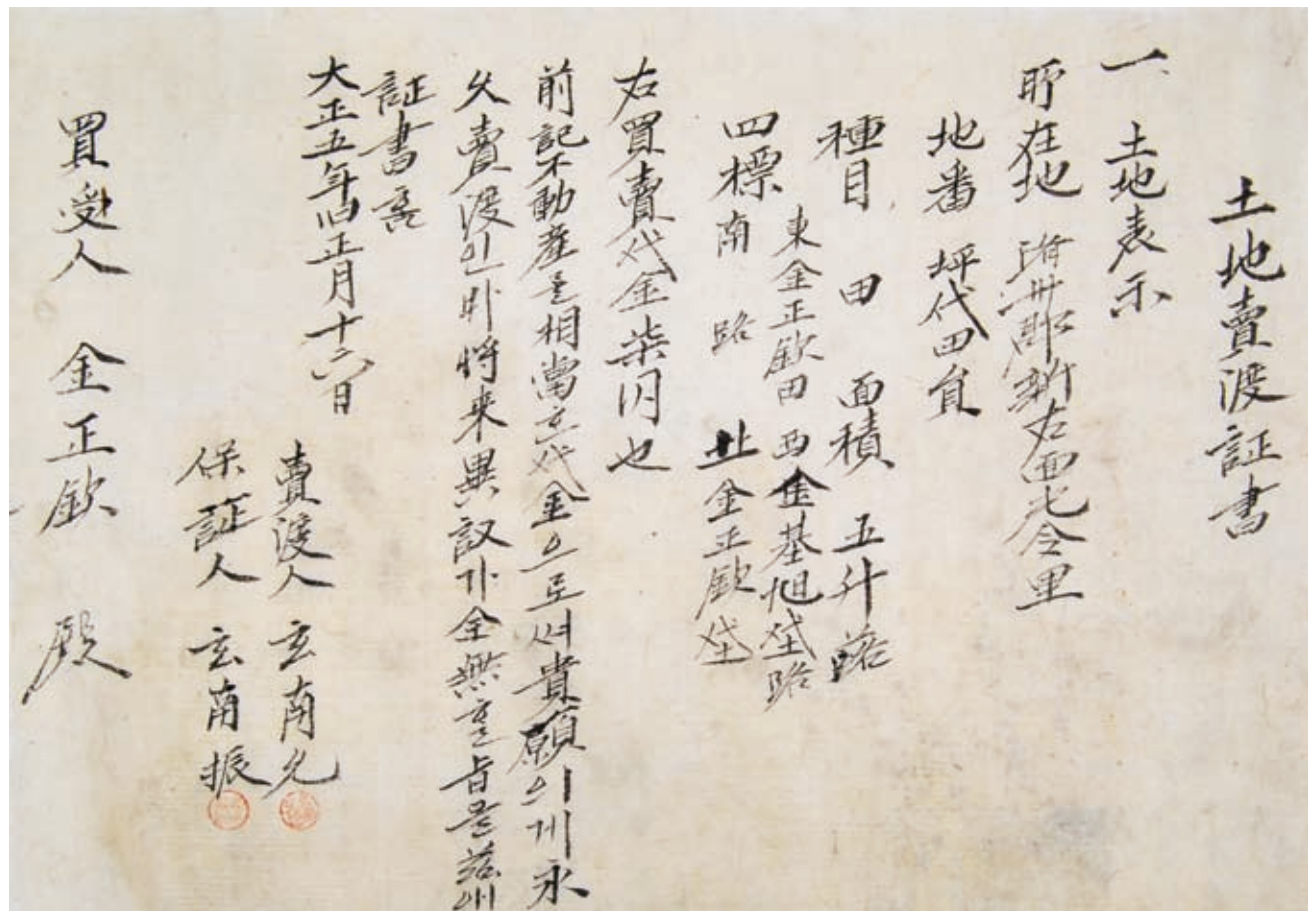 土地賣渡証書
一 土地表示
所在地 濟州郡新右面 今里
地番 坪代田員
種目 田 面積 五升 落
東 金正欽田 西 金基旭垈 路
四標 南 路 北 金正欽垈
右買賣代金柒円也
前記不動産을相當 代金으로써貴 의게永
久賣渡인바將來異議가全無 旨을玆에
証書홈
大正五年旧正月十六日
賣渡人 玄南允
保証人 玄南振
買受人 金正欽 殿